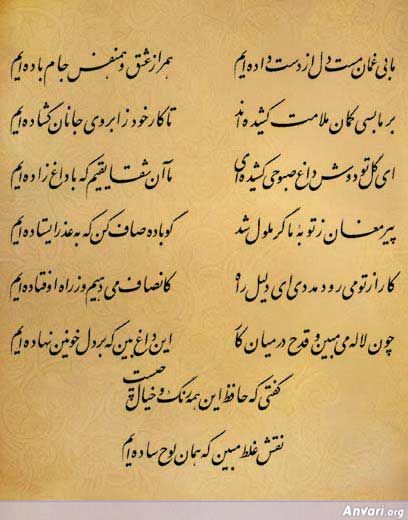 ما بی غمان مست دل از دست داده ایم همراز عشق و همنفس جام باده ایم
بر ما بسی کمان ملامت کشیده اند تا کار خود ز ابروی جانان گشاده ایم
ای گل تو دوش داغ صبوحی کشیده ای ما آن شقایقیم که با داغ زاده ایم
پیر مغان ز توبه ما گر ملول شد گو باده صاف کن که به عذر ایستاده ایم
کار از تو می رود مددی ای دلیل راه کانصاف می دهیم و ز راه اوفتاده ایم
چون لاله می مبین و قدح در میان کار این داغ بین که بر دل خونین نهاده ایم
گفتی که حافظ این همه رنگ و خیال چیست
نقش غلط مبین که همان لوح ساده ایم
Anvari.org